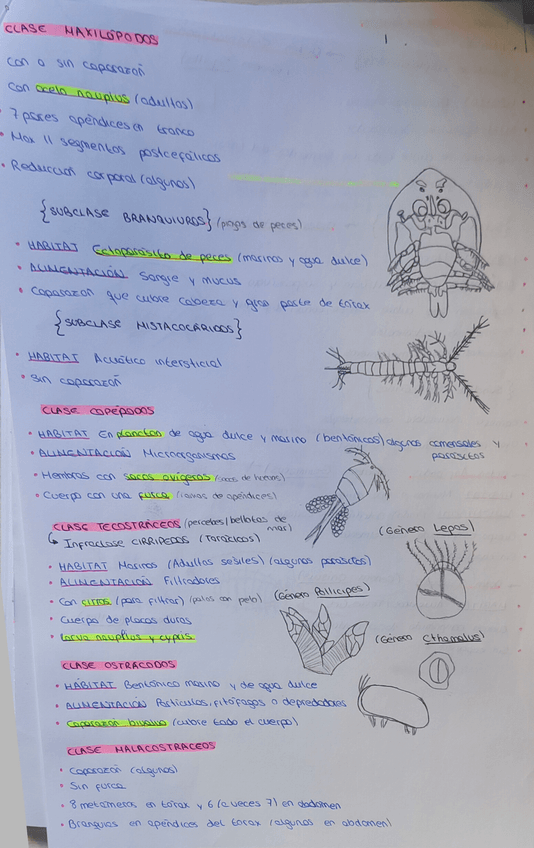 CLASE MAXILÓPODOS
1.
con o sin caparazón
con ocelo nauplius (adultos)
7 pares apéndices en tronco
Max 11 segmentos postcefálicos
Reducción corporal (algunos)
{SUBCLASE BRANQUIUROS} (piojos de peces)
HABITAT Ectoparásito de peces (marinos y agua dulce)
ALIMENTACIÓN Sangre y mucus
Caparazón que cubre cabeza y gran parte de tórax
{SUBCLASE MISTACOCÁRIDOS}
HABITAT Acuático intersticial
Sin caparazón
CLASE COPÉPODOS
HABITAT En plancton de agua dulce y marino (bentónicos) algunos comensales y parásitos
ALIMENTACIÓN Microorganismos
Hembras con sacos ovígeros (sacos de huevos)
Cuerpo con una furca (ramas de apéndices)
CLASE TECOSTRÁCEOS (percebes/bellotas de mar)
Infraclase CIRRÍPEDOS (Torácicos)
(Género Lepas)
HABITAT Marinos (Adultos sésiles) (algunos parásitos)
ALIMENTACIÓN Filtradores
Con cirros (para filtrar) (patas con pelo)
(Género Pollicipes)
Cuerpo de placas duras
Larva nauplius y cypris
(Género Cthamalus)
CLASE OSTRÁCODOS
HÁBITAT Bentónico marino y de agua dulce
ALIMENTACIÓN Partículas, fitófagos o depredadores
Caparazón bivalvo (cubre todo el cuerpo)
CLASE MALACOSTRACEOS
Caparazón (algunos)
Sin furca
8 metámeros en tórax y 6 (a veces 7) en abdomen
Branquias en apéndices del tórax (algunos en abdomen)